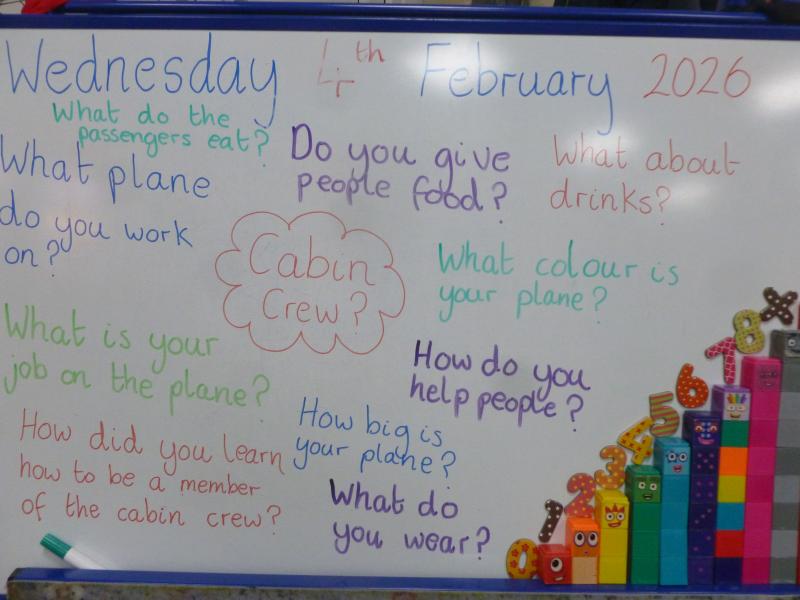 Wednesday 4th February 2026
What do the
passengers eat?
What plane
do you work
on?
Do you give
people food?
What about
drinks?
Cabin
Crew?
What colour is
your plane?
What is your
job on the plane?
How do you
help people?
How big is
your plane?
How did you learn
how to be a member
of the cabin crew?
What do
you wear?
0
1
2
3
4
5
6
7
8
x